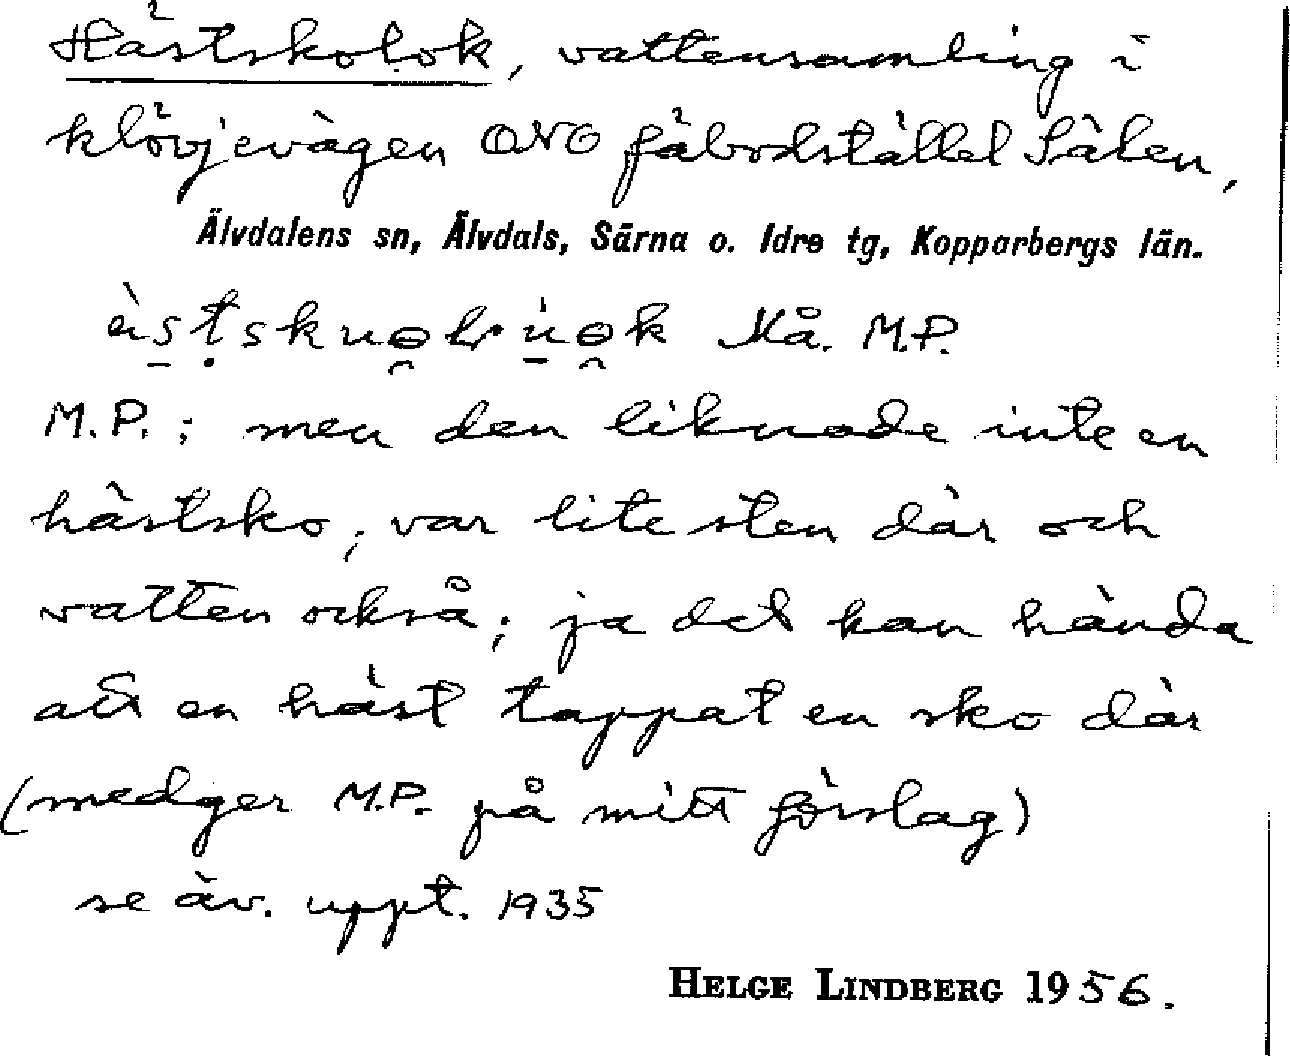 Hästskolok, vattensamling i
klövjevägen ONO fäbodstället Sälen,
Älvdalens sn, Älvdals, Särna o. Idre tg, Kopparbergs län.
Må. M.P.
M.P.: men den liknade inte en
hästsko; var lite sten där och
vatten också; ja det kan hända
att en häst tappat en sko där
(medger M.P. på mitt förslag)
se äv. uppt. 1935
HELGE LINDBERG 1956.